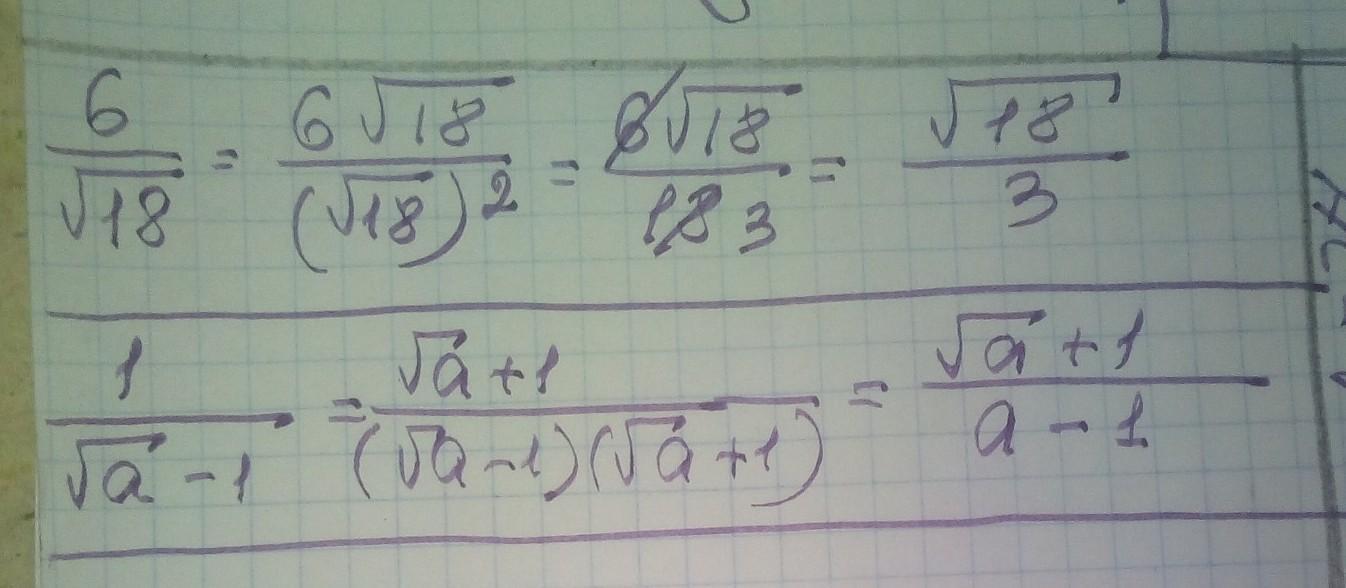 6/√18 = 6√18/(√18)² = 6√18/18 3 = √18/3
1/(√a - 1) = (√a + 1)/((√a - 1)(√a + 1)) = (√a + 1)/(a - 1)